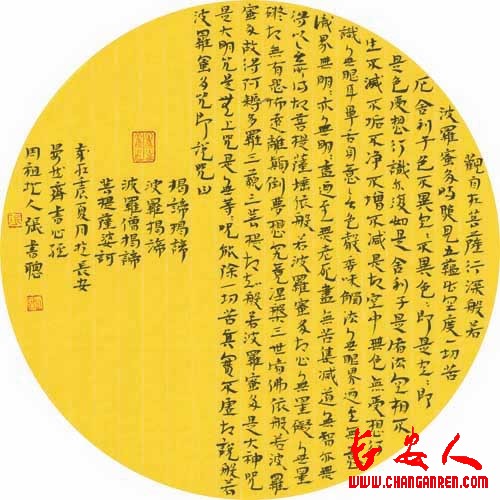 觀自在菩薩行深般若
波羅蜜多時照見五蘊皆空度一切苦
厄舍利子色不異空空不異色色即是空空即
是色受想行識亦復如是舍利子是諸法空相不
生不滅不垢不淨不增不減是故空中無色無受想行
識無眼耳鼻舌身意無色聲香味觸法無眼界乃至無意
識界無明亦無明盡乃至無老死盡無苦集滅道無智亦無
得以無所得故菩提薩埵依般若波羅蜜多故心無罣礙無罣
礙故無有恐怖遠離顛倒夢想究竟涅槃三世諸佛依般若波羅
蜜多故得阿耨多羅三藐三菩提故知般若波羅蜜多是大神咒
是大明咒是無上咒是無等咒能除一切苦真實不虛故說般若
波羅蜜多咒即說咒曰
揭諦揭諦
波羅揭諦
波羅僧揭諦
菩提薩婆訶
夏月於長安
齋書心經
人張書聰
长安人
WWW.CHANGANREN.COM